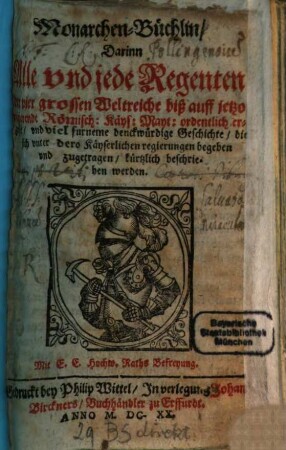 Monarchen-Büchlin/
Darinn
Alle vnd jede Regenten
vier grossen Weltreiche biß auff jetzo
Römisch: Käys: Mayt: ordentlich er-
vnd viel furneme denckwürdige Geschichte/ die
sich vnter dero Käyserlichen regierungen begeben
vnd zugetragen/ kürtzlich beschrie-
ben werden.
Bayerische
Staatsbibliothek
München
Mit E. E. Hochw. Raths Befreyung.
Gedruckt bey Philip Wittel/ In verlegung Johan
Birckners/ Buchhändler zu Erffurdt.
ANNO M. DC. XX.